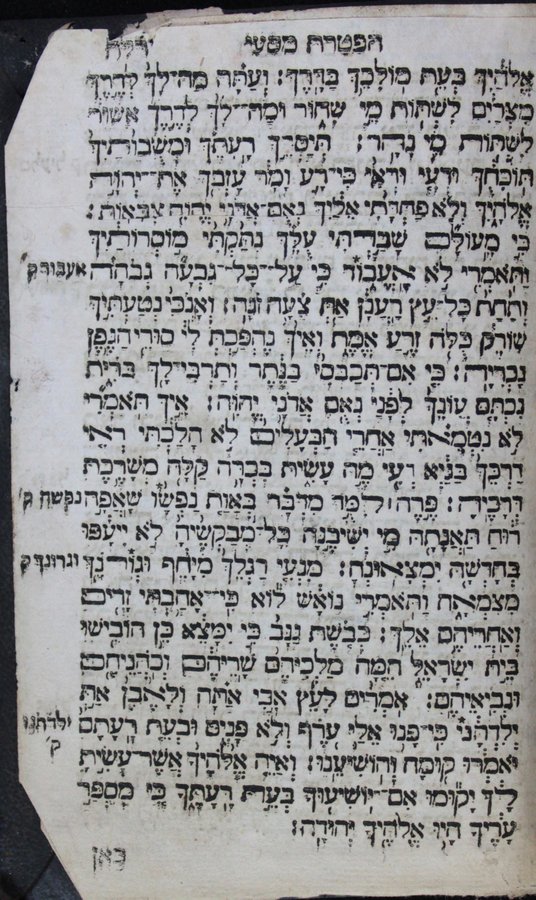 הפטרת מסעי
אֱלֹהַיִךְ בְּעֵת מוֹלִכֵךְ בַּדָּרֶךְ: וְעַתָּה מַה־לָּךְ לְדֶרֶךְ
מִצְרַיִם לִשְׁתּוֹת מֵי שִׁחוֹר וּמַה־לָּךְ לְדֶרֶךְ אַשּׁוּר
לִשְׁתּוֹת מֵי נָהָר: תְּיַסְּרֵךְ רָעָתֵךְ וּמְשֻׁבוֹתַיִךְ
תּוֹכִחֻךְ וּדְעִי וּרְאִי כִּי־רַע וָמָר עָזְבֵךְ אֶת־יְהוָה
אֱלֹהָיִךְ וְלֹא פַחְדָּתִי אֵלַיִךְ נְאֻם־אֲדֹנָי יֱהוִה צְבָאוֹת:
כִּי מֵעוֹלָם שָׁבַרְתִּי עֻלֵּךְ נִתַּקְתִּי מוֹסְרוֹתַיִךְ
וַתֹּאמְרִי לֹא אֶעֱבוֹד כִּי עַל־כָּל־גִּבְעָה גְּבֹהָה אעבור ק
וְתַחַת כָּל־עֵץ רַעֲנָן אַתְּ צֹעָה זֹנָה: וְאָנֹכִי נְטַעְתִּיךְ
שׂוֹרֵק כֻּלֹּה זֶרַע אֱמֶת וְאֵיךְ נֶהְפַּכְתְּ לִי סוּרֵי הַגֶּפֶן
נָכְרִיָּה: כִּי אִם־תְּכַבְּסִי בַּנֶּתֶר וְתַרְבִּי־לָךְ בֹּרִית
נִכְתָּם עֲוֹנֵךְ לְפָנַי נְאֻם אֲדֹנָי יֱהוִה: אֵיךְ תֹּאמְרִי
לֹא נִטְמֵאתִי אַחֲרֵי הַבְּעָלִים לֹא הָלַכְתִּי רְאִי
דַרְכֵּךְ בַּגַּיְא דְּעִי מֶה עָשִׂית בִּכְרָה קַלָּה מְשָׂרֶכֶת
דְּרָכֶיהָ: פֶּרֶה לִמֻּד מִדְבָּר בְּאַוַּת נַפְשׁוֹ שָׁאֲפָה נפשה ק'
רוּחַ תַּאֲנָתָהּ מִי יְשִׁיבֶנָּה כָּל־מְבַקְשֶׁיהָ לֹא יִיעָפוּ
בְּחָדְשָׁהּ יִמְצָאוּנְהָ: מִנְעִי רַגְלֵךְ מִיָּחֵף וּגְוֹרֹנֵךְ וגרונך ק
מִצִּמְאָה וַתֹּאמְרִי נוֹאָשׁ לוֹא כִּי־אָהַבְתִּי זָרִים
וְאַחֲרֵיהֶם אֵלֵךְ: כְּבֹשֶׁת גַּנָּב כִּי יִמָּצֵא כֵּן הוֹבִישׁוּ
בֵּית יִשְׂרָאֵל הֵמָּה מַלְכֵיהֶם שָׂרֵיהֶם וְכֹהֲנֵיהֶם
וּנְבִיאֵיהֶם: אֹמְרִים לָעֵץ אָבִי אַתָּה וְלָאֶבֶן אַתְּ
יְלִדְתָּנִי כִּי־פָנוּ אֵלַי עֹרֶף וְלֹא פָנִים וּבְעֵת רָעָתָם ילדתנו ק'
יֹאמְרוּ קוּמָה וְהוֹשִׁיעֵנוּ: וְאַיֵּה אֱלֹהֶיךָ אֲשֶׁר עָשִׂיתָ
לָּךְ יָקוּמוּ אִם־יוֹשִׁיעוּךָ בְּעֵת רָעָתֶךָ כִּי מִסְפַּר
עָרֶיךָ הָיוּ אֱלֹהֶיךָ יְהוּדָה:
כאן